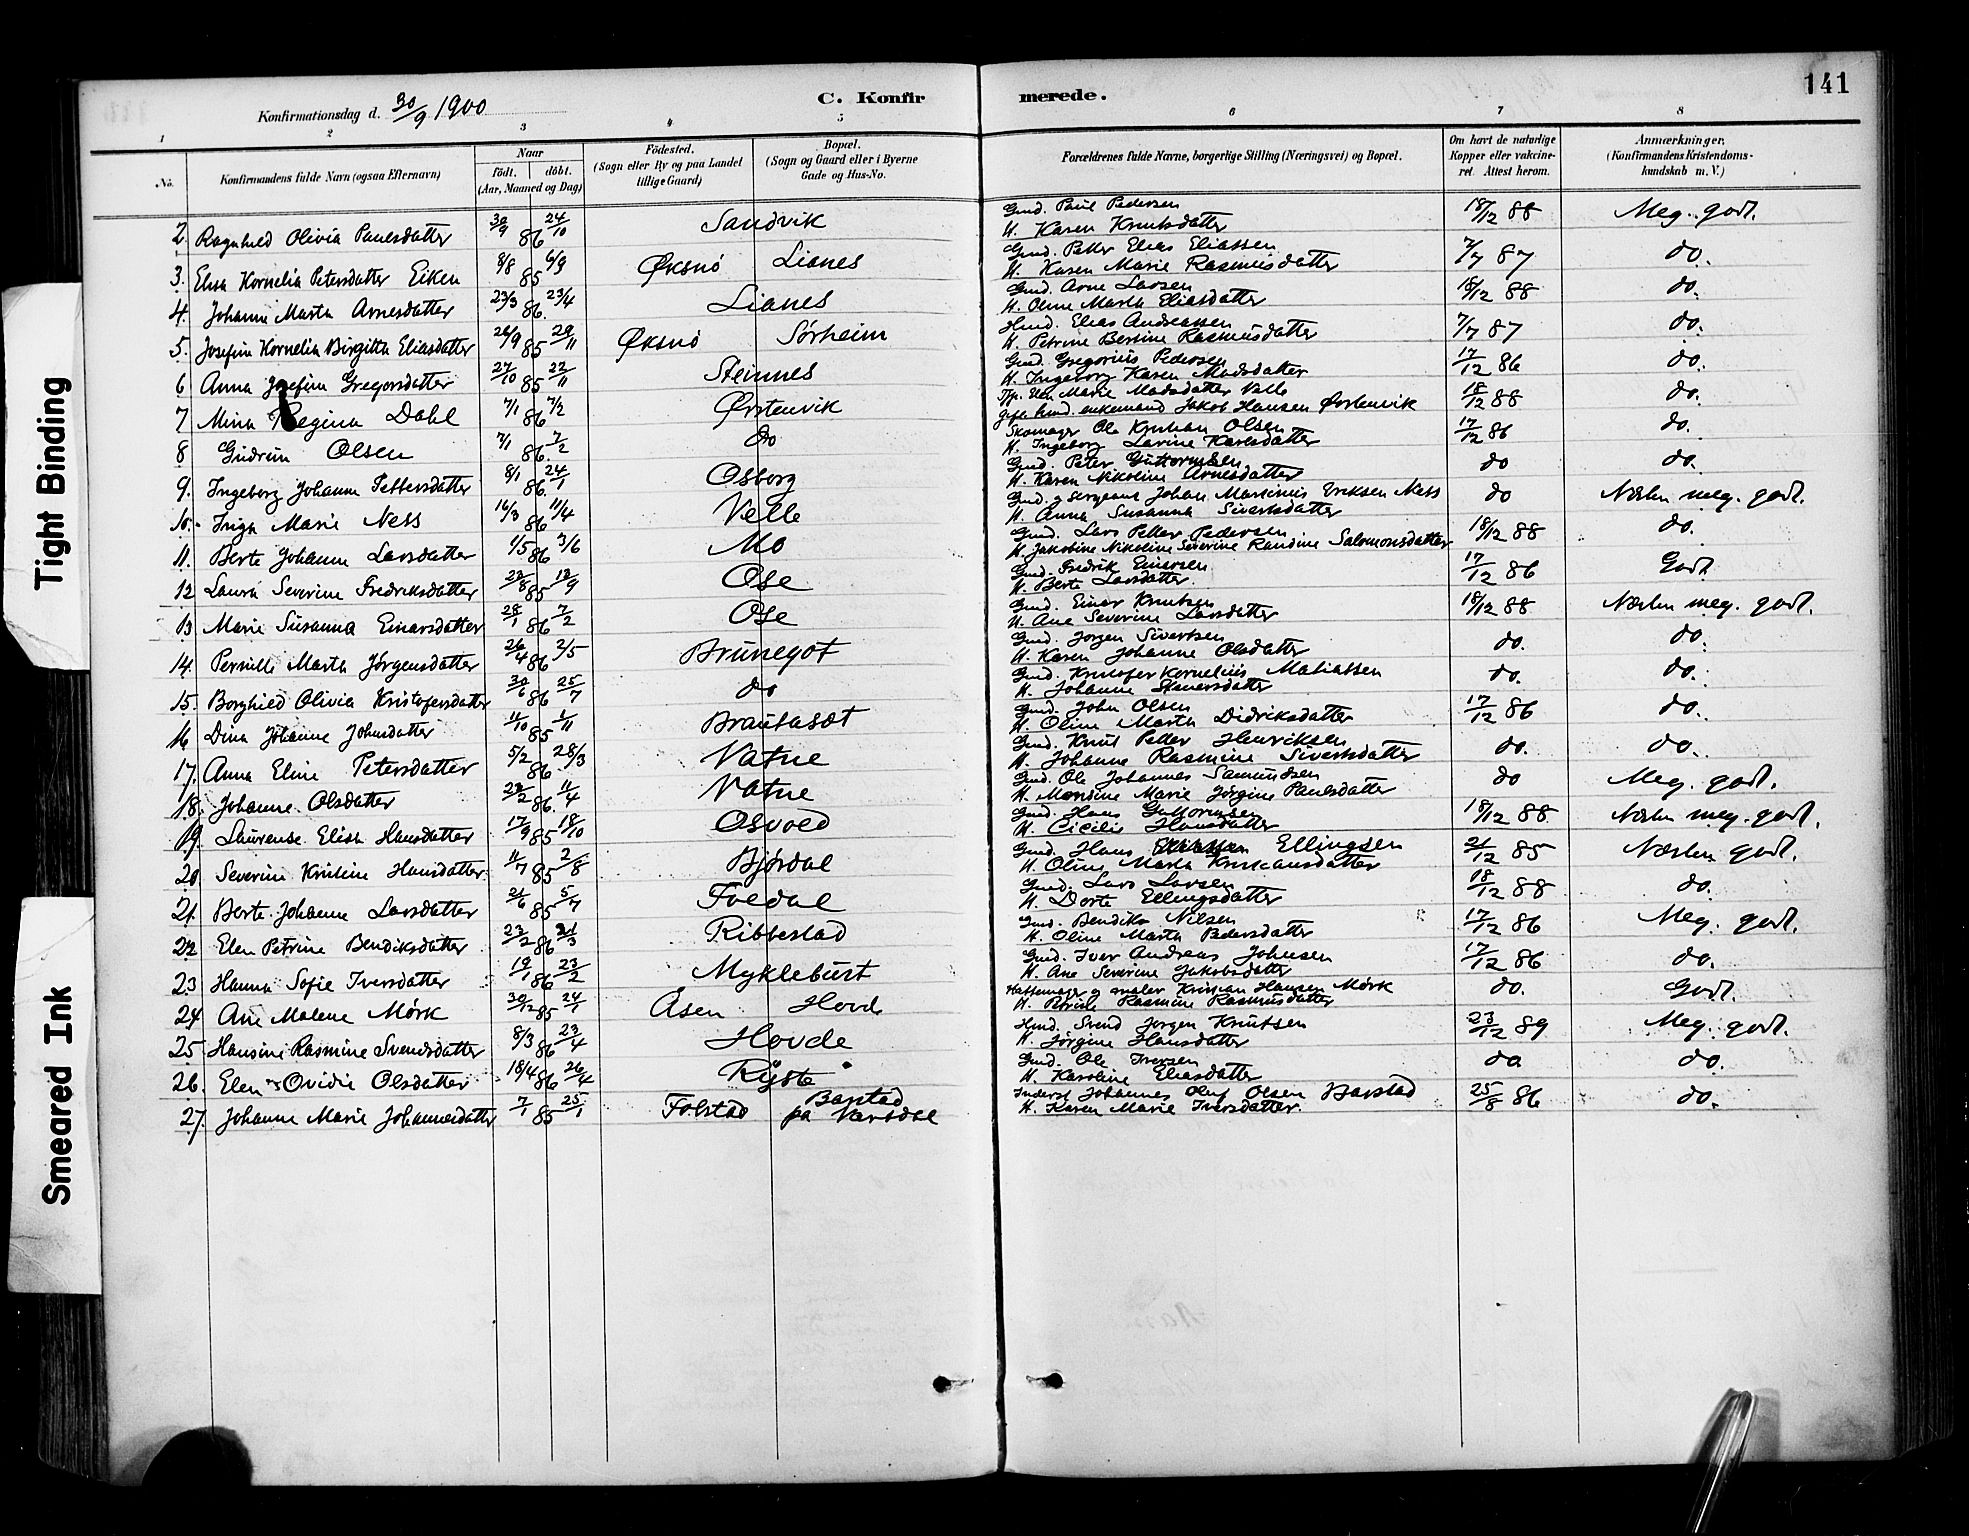 141
Konfirmationsdag d. 30/9 1900
C. Konfir merede.
1 2 3 4 5 6 7 8
No.
Konfirmandens fulde Navn (ogsaa Efternavn)
Naar
födt. döbt.
(Aar, Maaned og Dag)
Födested.
(Sogn eller By og paa Landet tillige Gaard)
Bopæl.
(Sogn og Gaard eller i Byerne Gade og Hus-No.
Forældrenes fulde Navne, borgerlige Stilling (Næringsvei) og Bopæl.
Om havt de naturlige Kopper eller vakcineret. Attest herom.
Anmærkninger.
(Konfirmandens Kristendomskundskab m. V.)
2. Ragnhild Olivia Paulsdatter 30/9 86 24/10 Sandvik Gmd. Paul Pedersen H. Karen Knutsdatter 18/12 88 Meg. godt.
3. Elisa Kornelia Petersdatter Eiken 8/8 85 6/9 Øksnö Lianes Gmd. Petter Elias Eliassen H. Karen Marie Rasmusdatter 7/7 87 do.
4. Johanne Marta Arnesdatter 23/3 86 23/4 Lianes Gmd. Arne Larsen H. Oline Marta Eliasdatter 18/12 88 do.
5. Josefine Kornelia Birgitte Eliasdatter 26/9 85 29/11 Øksnö Sørheim Hmd. Elias Andreassen H. Petrine Bertine Rasmusdatter 7/7 87 do.
6 Anna Josefine Gregorsdatter 27/10 85 22/11 Steinnes Gmd. Gregorius Pedersen H. Ingeborg Karen Madsdatter 17/12 86 do.
7 Mina Regina Dahl 7/1 86 7/2 Ørstenvik Marie Madsdatter Velle gift hmd. enkemand Jakob Hansen Ørstenvik 18/12 88 do.
8 Gudrun Olsen 7/1 86 7/2 do Skomager Ole Kristian Olsen H. Ingeborg Lavine Karlsdatter 17/12 86 do.
9. Ingeborg Johanne Pettersdatter 8/1 86 24/1 Osborg Gmd. Peter Guttormsen H. Karen Nikoline Arnesdatter do do.
10. Inga Marie Ness 16/3 86 11/4 Velle Gmd. g sergeant Johan Martinus Eriksen Ness H. Anna Susanna Sivertsdatter do Næsten meg. godt.
11. Berte Johanne Larsdatter 1/5 86 3/6 Mo Gmd. Lars Petter Pedersen H. Jakobine Nikoline Severine Randine Salomonsdatter 18/12 88 do.
12 Laura Severine Fredriksdatter 23/8 85 13/9 Ose Gmd. Fredrik Einersen H. Berte Larsdatter 17/12 86 Godt.
13 Marie Susanna Einarsdatter 28/1 86 7/2 Ose Gmd. Einar Knutsen H. Ane Severine Larsdatter 18/12 88 Næsten meg. godt.
14. Pernille Marta Jørgensdatter 26/4 86 2/5 Brunegot Gmd. Jørgen Sivertsen H. Karen Johanne Olsdatter do. do.
15. Borghild Olivia Kristofersdatter 30/6 86 25/7 do Gmd. Kristofer Kornelius Matiassen H. Johanne do. do.
16 Dina Johanne Johnsdatter 11/10 85 1/11 Brautasæt Gmd. John Olsen H. Oline Marta Didriksdatter 17/12 86 do.
17. Anna Eline Petersdatter 5/2 86 28/3 Vatne Gmd. Knut Petter Henriksen H. Johanne Rasmine Sivertsdatter do. do.
18. Johanne Olsdatter 22/2 86 11/4 Vatne Gmd. Ole Johannes Samundsen H. Monsine Marie Jørgine Paulsdatter do Meg. godt.
19. Laurense Elisa Hansdatter 17/9 85 18/10 Osvold Gmd. Hans Guttormsen H. Cicilie Hansdatter 18/12 88 Næsten meg. godt.
20 Severine Kristine Hansdatter 11/7 85 2/8 Bjørdal Gmd. Hans Ellingsen H. Oline Marta Kristiansdatter 21/12 85 Næsten godt.
21. Berte Johanne Larsdatter 21/6 85 5/7 Foldal Gmd. Lars Larsen H. Dorte Ellingsdatter 18/12 88 do.
22 Elen Petrine Bendiksdatter 23/2 86 21/3 Ribbestad Gmd. Bendik Nilsen H. Oline Marta Pedersdatter 17/12 86 Meg. godt.
23 Hanna Sofie Iversdatter 19/1 86 23/2 Myklebust Gmd. Iver Andreas Johnsen H. Ane Severine Jakobsdatter 17/12 86 do.
24 Ane Malene Mørk 30/12 85 24/1 Åsen Hovde g maler Kristian Hansen Mørk H. Rasmine Rasmusdatter do. Godt.
25 Hansine Rasmine Svendsdatter 8/3 86 23/4 Hovde Hmd. Svend Jørgen Knutsen H. Jørgine Hansdatter 23/12 89 Meg. godt.
26. Elen Ovidie Olsdatter 18/4 86 26/4 Ryste Gmd. Ole Iversen H. Karoline Eliasdatter do do.
27. Johanne Marie Johannesdatter 7/1 85 25/1 Folstad Barstad pa Vartdal Inderst Johannes Oluf Olsen Barstad H. Karen Marie Iversdatter 25/8 86 do.
Tight Binding
Smeared Ink